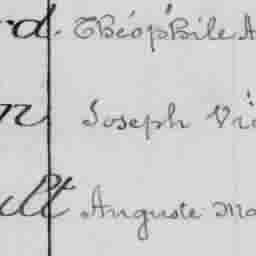 rd. Théophile A
n Joseph Vic
ult Auguste Ma